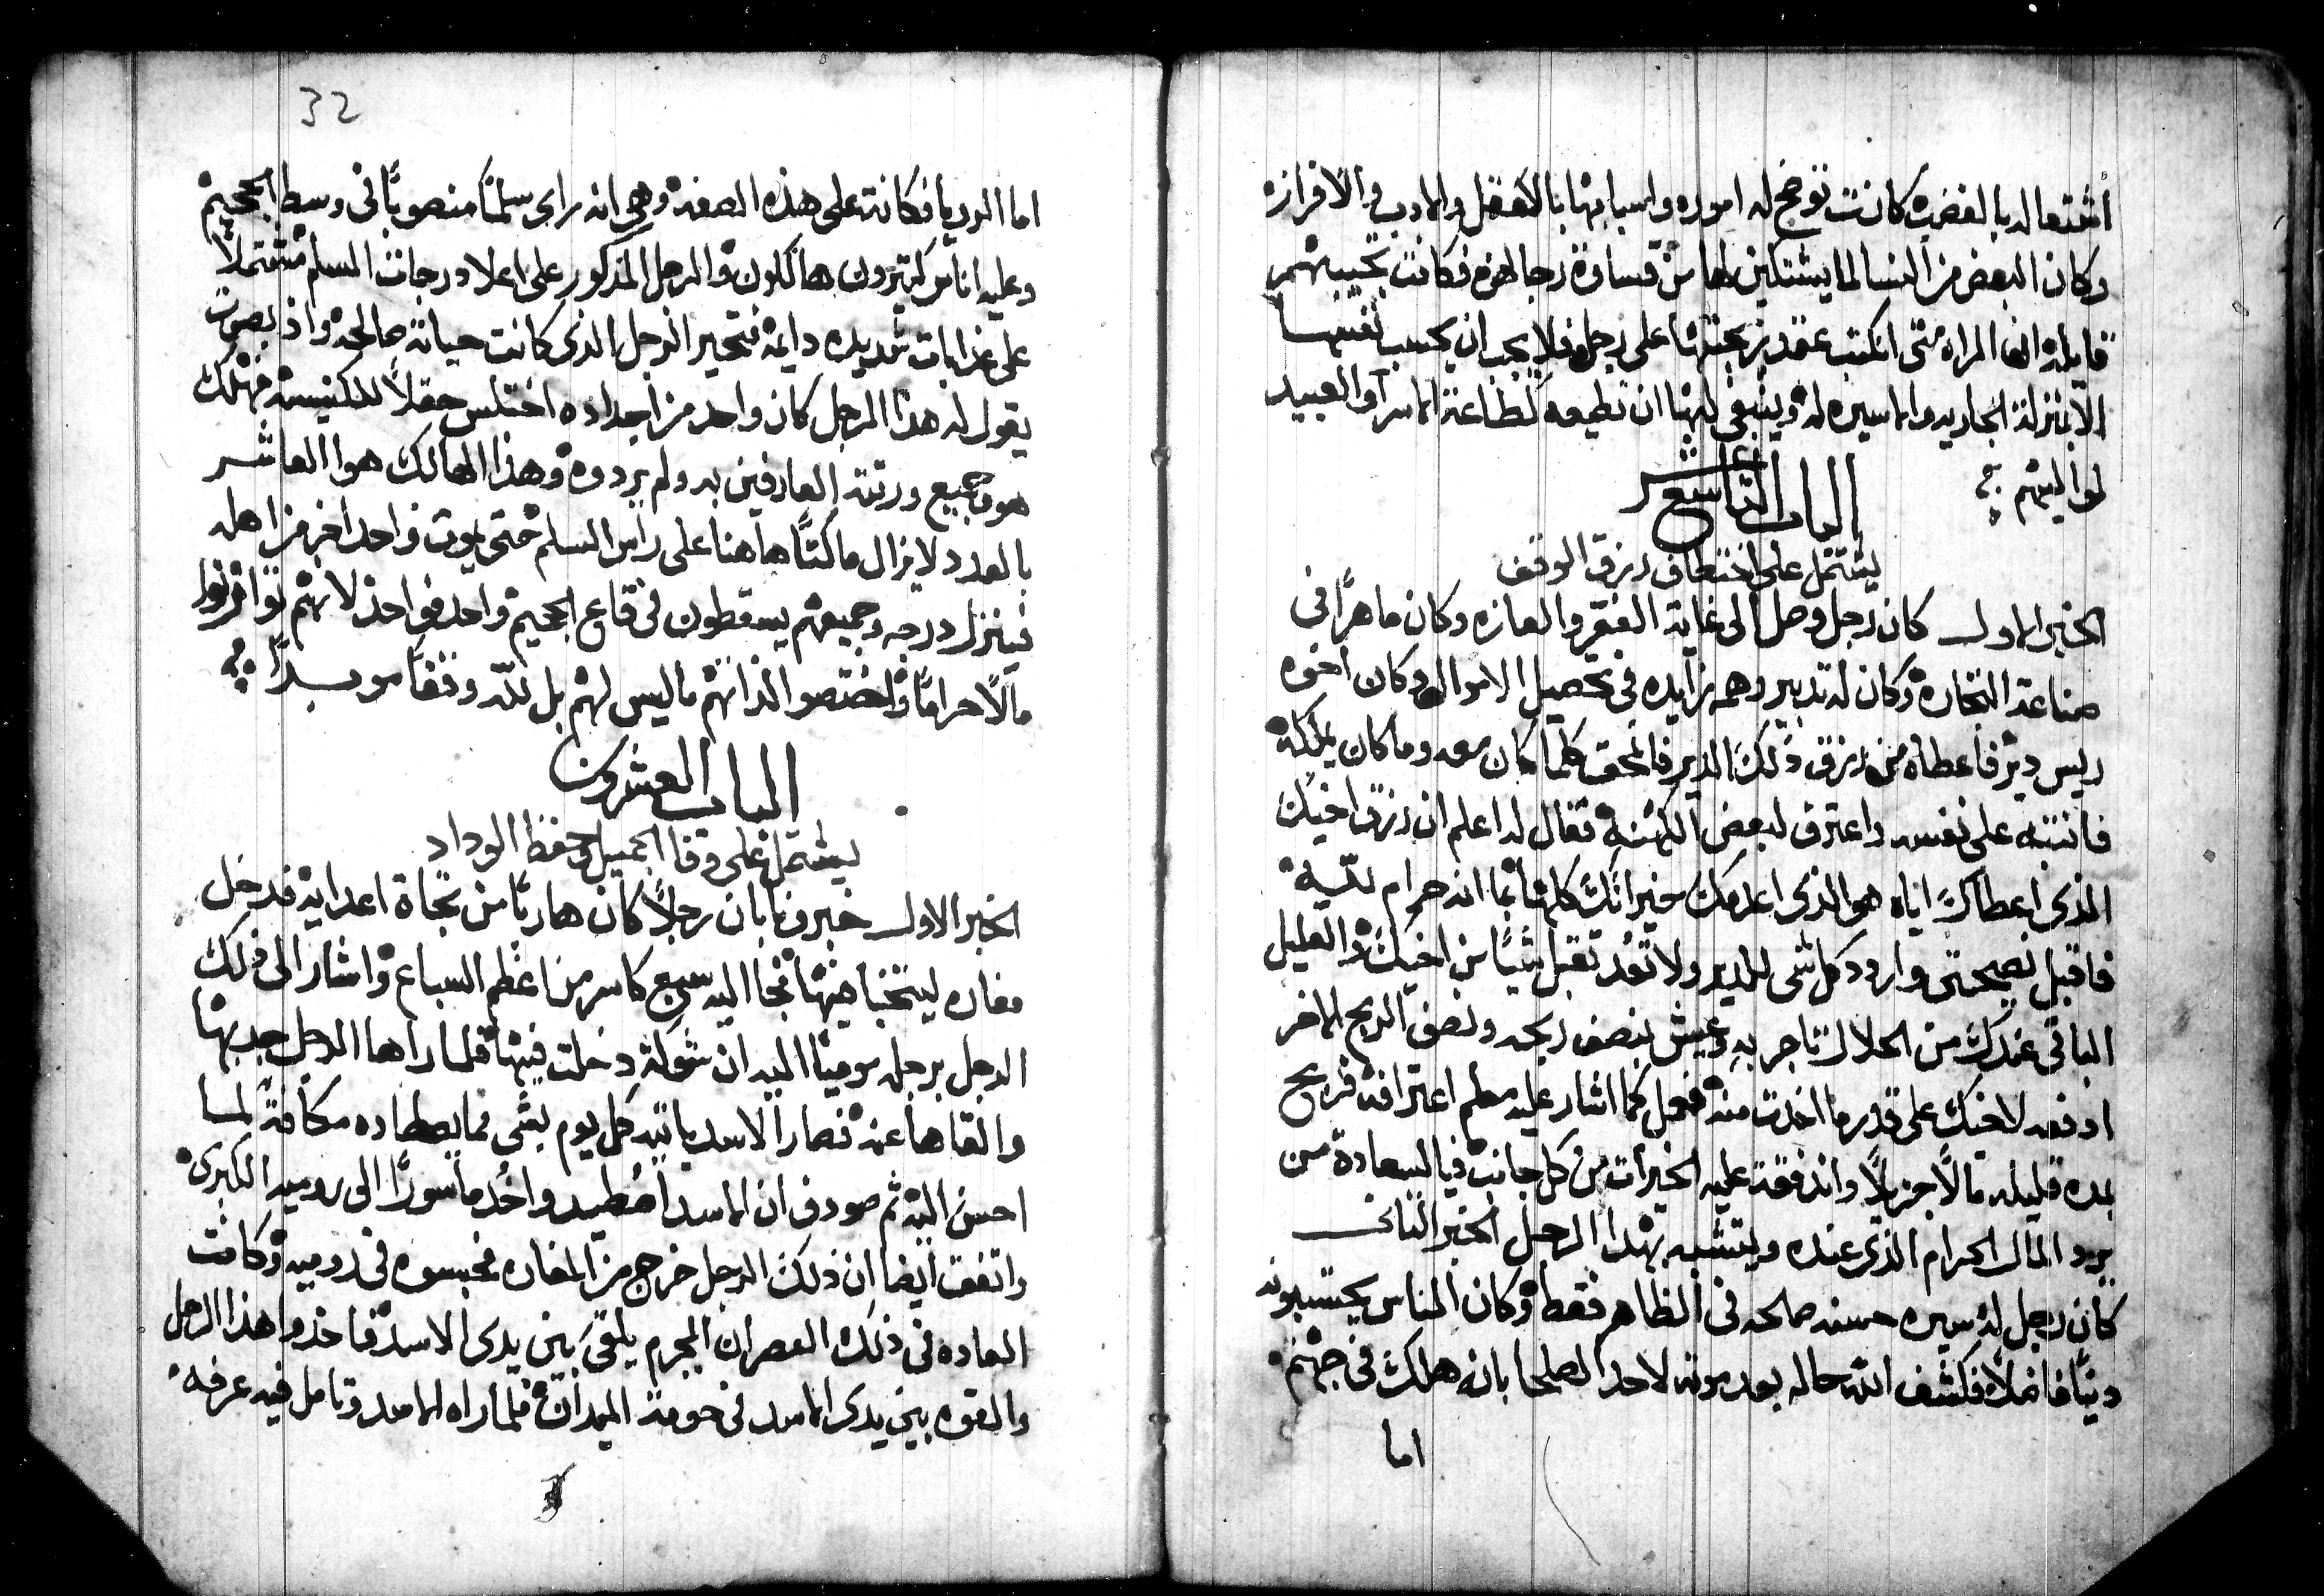 اشتعاله بالغضب كانت توضح له اموره واسبابها بالعقل والادب والافرازه
وكان البعض من النسا لما يشتكين لها من قساوة رجالهن فكانت تجيبهم
قايله ان المراه متى انكتب عقد زيجتها على رجل فلا يجب ان تحسب نفسها
الا بمنزلة الجاريه والاسيره له وينبغي لها ان تطيعه كطاعة الاسرا والعبيد
لمواليهم
الباب التاسع عشر
يشتمل على اختطاف رزق الوقف
الخبر الاول كان رجل وصل الى غاية الفقر والعازه وكان ماهرًا في
صناعة التجاره وكان له تدبير وهمه زايده في تحصيل الاموال وكان اخوه
ريس دير فاعطاه من رزق ذلك الدير فانمحق كلما كان معه وما كان يملكه
فانتبه على نفسه واعترف لبعض الكهنه فقال له اعلم ان رزق اخيك
الذي اعطاك اياه هو الذي اعدمك خيراتك كلها بما انه حرام لله
فاقبل نصيحتي واردد كل شي للدير ولا تعُد تقبل شيًا من اخيك والقليل
الباقي عندك من الحلال تاجر به وعيش بنصف ربحه ونصف الربح الاخر
ادفعه لاخيك على قدر ما اخذت منه ففعل كما اشار عليه معلم اعترافه فربح
بمده قليله مالًا جزيلًا واندفقة عليه الخيرات من كل جانب فيا لسعادة من
يرد المال الحرام الذي عنده ويتشبه بهذا الرجل الخبر الثاني
كان رجل له سيره حسنه صالحه في الظاهر فقط وكان الناس يحتسبونه
دينًا فاضلًا فكشف الله حاله بعد موته لاحد الصلحا بانه هلك في جهنم
اما
32
اما الرويا فكانة على هذه الصفه وهي انه راى سلمًا منصوبًا في وسط الجحيم
وعليه اناس كثيرون هالكون والرجل المذكور على اعلا درجات السلم مشتملًا
على عذابات شديده دايمه فتحير الرجل الذي كانت حياته صالحه واذ بصوت
يقول له هذا الرجل كان واحد من اجداده اختلس حقلًا للكنيسه فهلك
هو وجميع ورثته العارفين به ولم يردوه وهذا الهالك هو العاشر
بالعدد لا يزال ماكثًا هاهنا على راس السلم حتى يموت واحد اخر من اهله
فينزل درجه وجميعهم يسقطون في قاع الجحيم واحد فواحد لانهم توارثوا
مالًا حرامًا واختصوا لذاتهم ما ليس لهم بل لله وقفًا موبدًا
الباب العشرون
يشتمل على وفا الجميل وحفظ الوداد
الخبر الاول خبرونا بان رجلًا كان هاربًا من نجاة اعدايه فدخل
مغاره ليتخبا فيها فجا اليه سبع كاسر من اعظم السباع واشار الى ذلك
الرجل برجله موميًا اليه ان شوكة دخلت فيها فلما راها الرجل جذبها
والقاها عنه فصار الاسد ياتيه كل يوم بشي مما يصطاده مكافة لما
احسن اليه ثم صودف ان الاسد اصُطيد واخُد ماسورًا الى روميه الكبرى
واتفق ايضا ان ذلك الرجل خرج من المغاره فحبسوه في روميه وكانت
العاده في ذلك العصر ان المجرم يلقى بين يدي الاسد فاخذوا هذا الرجل
والقوه بين يدي الاسد في حومة الميدان فلما راه الاسد وتامل فيه عرفه